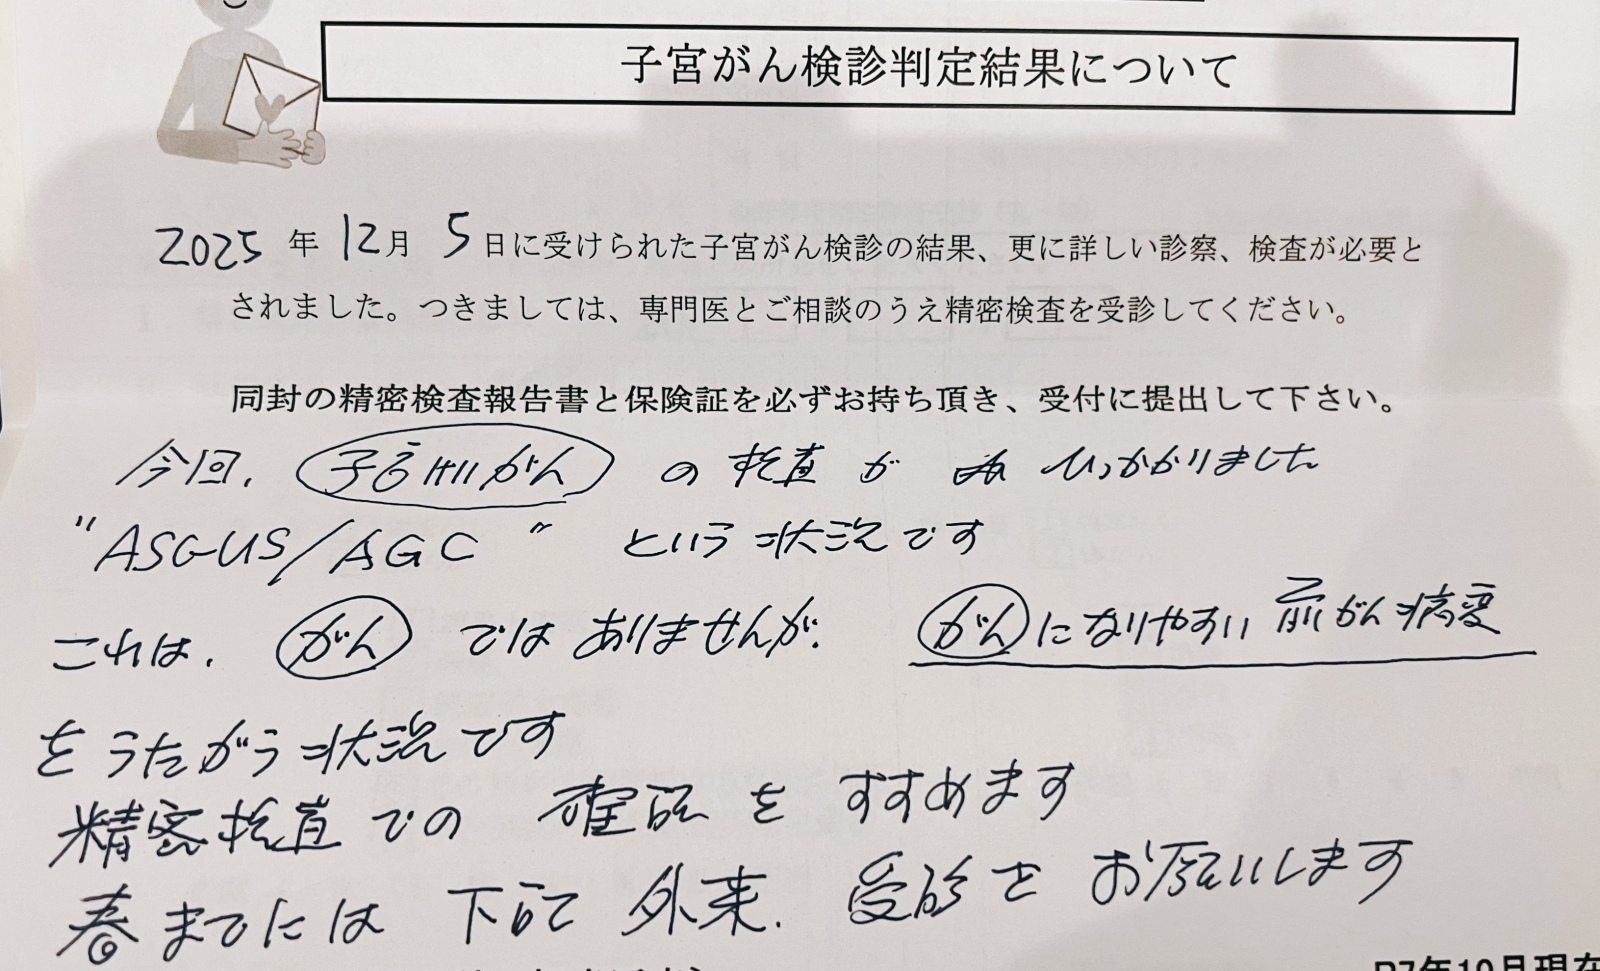 子宮がん検診判定結果について
2025年12月5日に受けられた子宮がん検診の結果、更に詳しい診察、検査が必要と
されました。つきましては、専門医とご相談のうえ精密検査を受診してください。
同封の精密検査報告書と保険証を必ずお持ち頂き、受付に提出して下さい。
今回、子宮けいがんの検査がひっかかりました
"ASCUS/AGC"という状況です
これは、がんではありませんが、がんになりやすい前がん病変
をうたがう状況です
精密検査での確認をすすめます
春までには下記外来、受診をお願いします
R7年10月現在